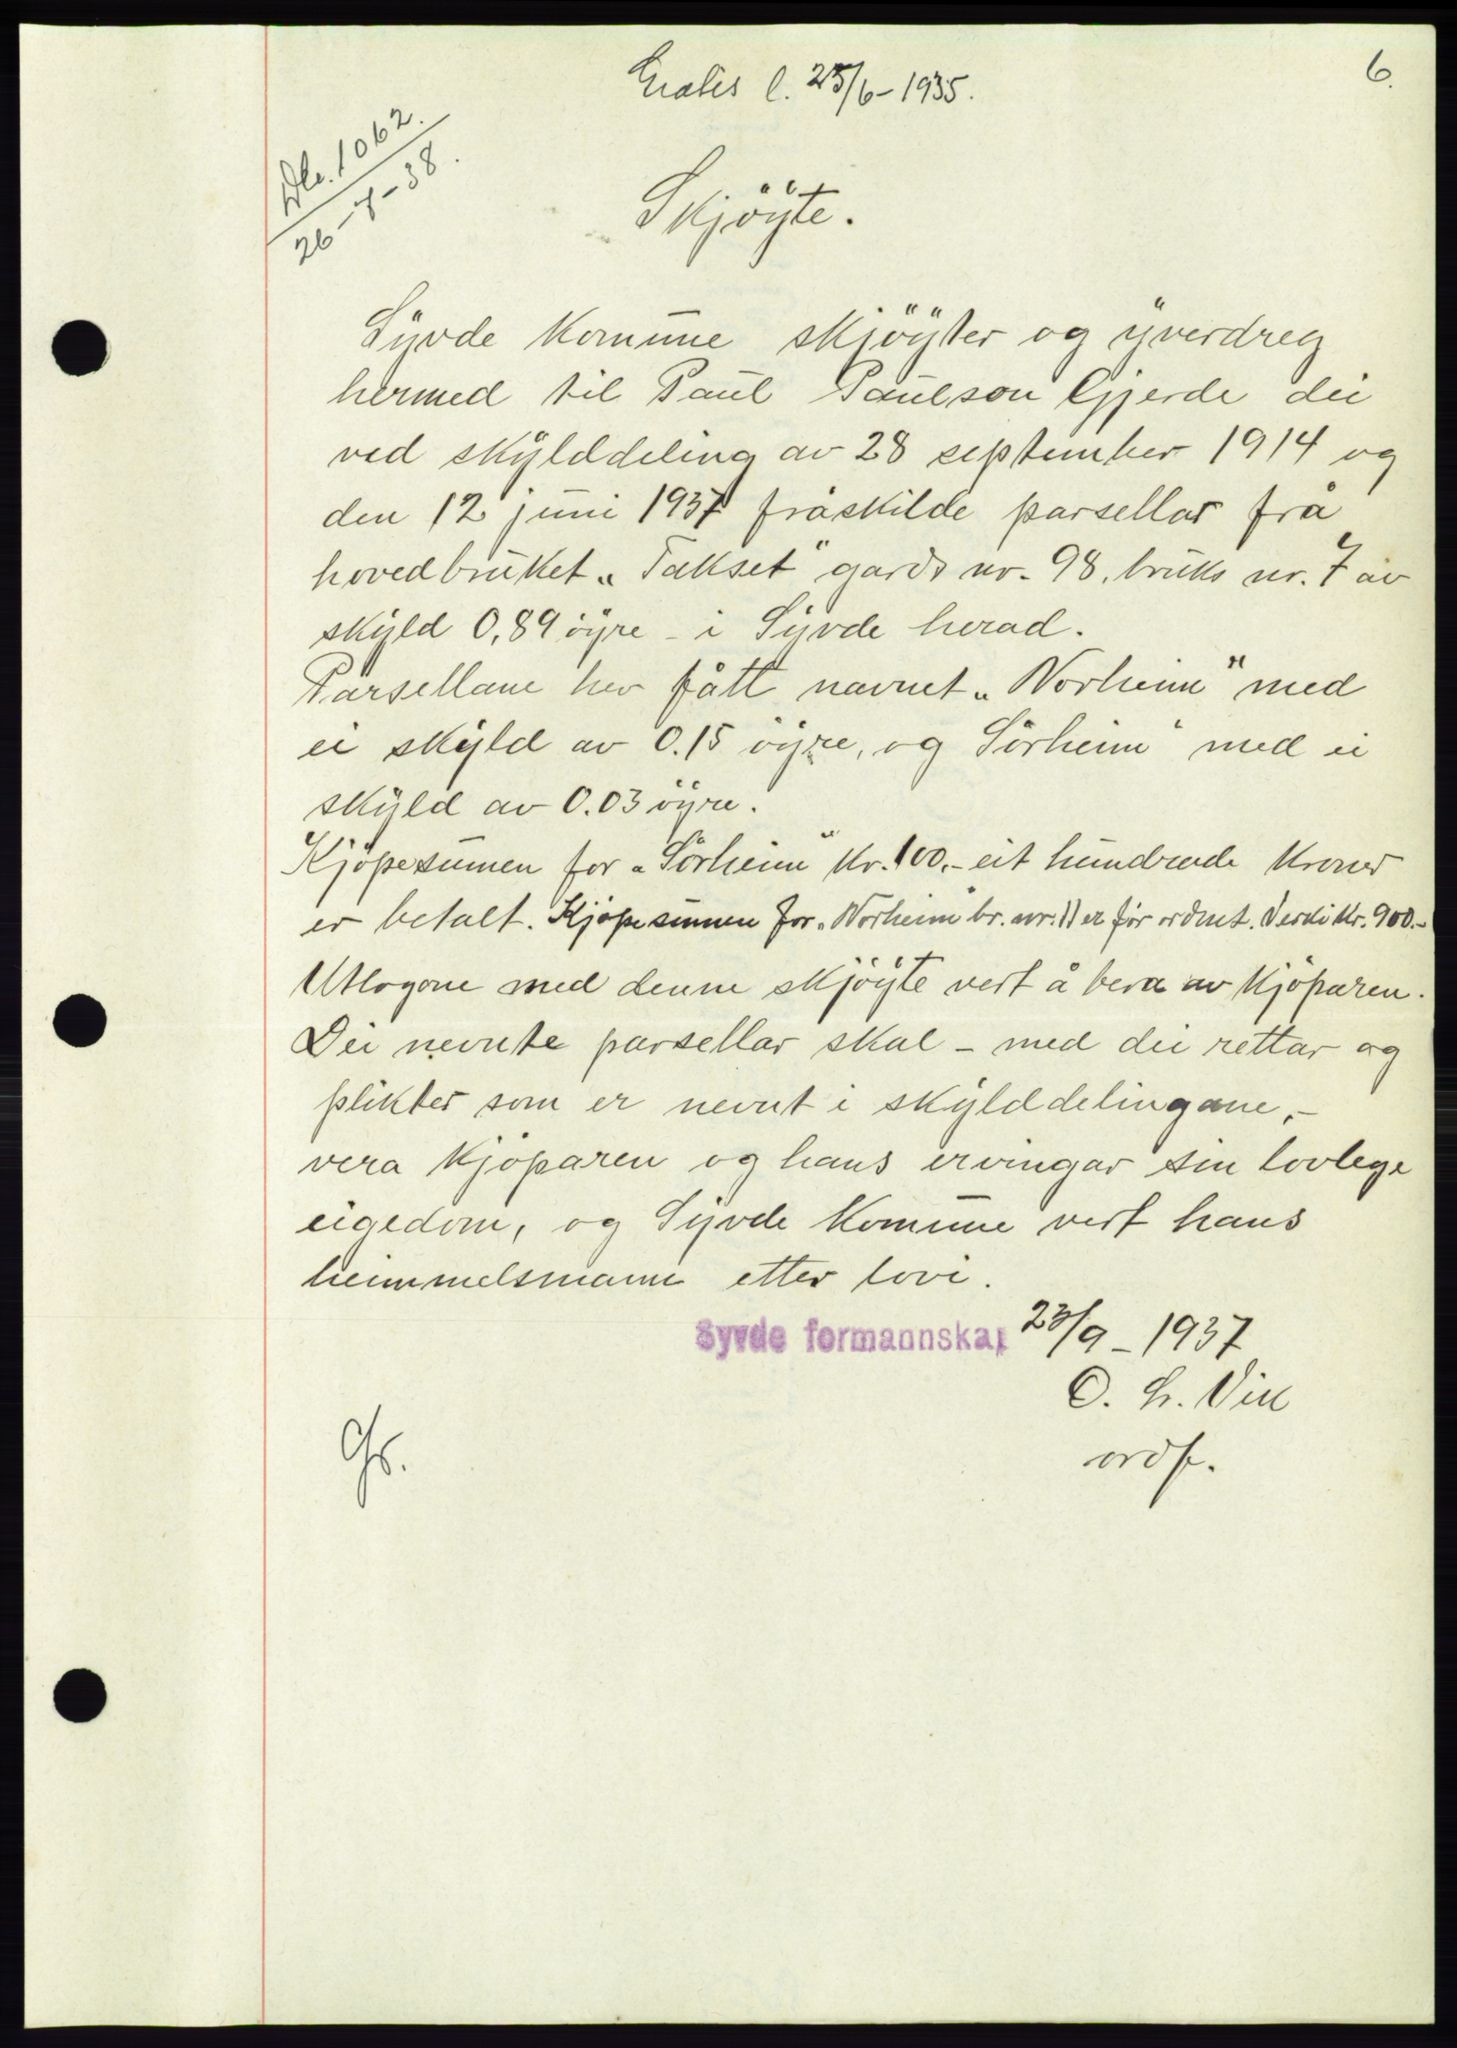 6.
Gratis l. 25/6-1935.
Dbl. 1062.
26-7-38.
Skjöyte.
Syvde Komune skjöyter og yverdreg
hermed til Paul Paulson Gjerde dei
ved skylddeling av 28 september 1914 og
den 12 juni 1937 fråskilde parsellar frå
hovedbruket „Takset" gards nr. 98, bruks nr. 7 av
skyld 0,89 öyre - i Syvde herad.
Parsellane hev fått navnet „Norheim" med
ei skyld av 0.15 öyre, og Sörheim" med ei
skyld av 0.03 öyre.
Kjöpesumen for „Sörheim" Kr. 100.- eit hundrede Kroner
er betalt. Kjöpesumen for „Norheim" br. nr. 11 er för ordnet. Verdi kr. 900.-
Utlogone med denne skjöyte vert å bera av Kjöparen.
Dei nevnte parsellar skal - med dei rettar og
plikter som er nevnt i skylddelingane,-
vera Kjöparen og hans ervingar sin lovlege
eigedom, og Syvde Komune vert hans
heimmelsmann etter lovi.
Syvde formannskap 23/9-1937
O. L. Vik
ordf.